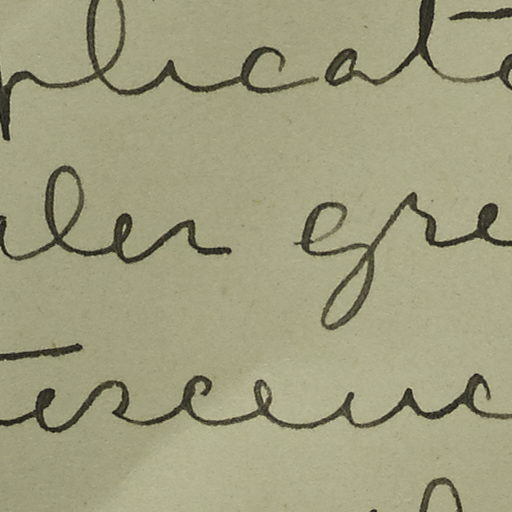 plicate
aler gre
tescenc